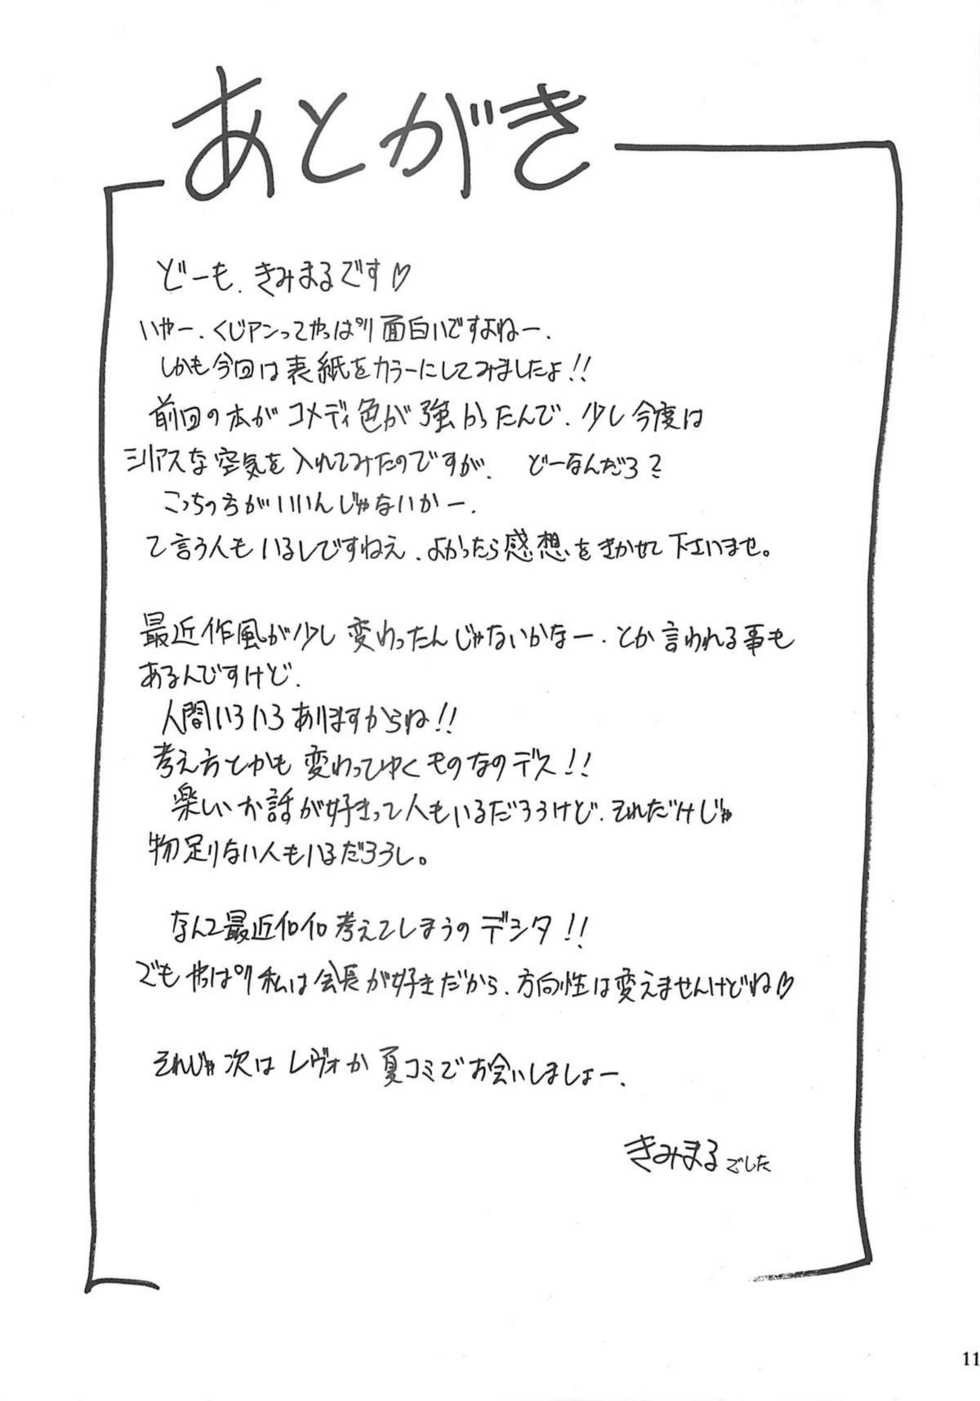 あとがき
どーも、きみまるです♡
いやー、くじアンってやっぱり面白いですよねー、
しかも今回は表紙をカラーにしてみましたよ!!
前回の本がコメディ色が強かったんで、少し今度は
シリアスな空気を入れてみたのですが、 どーなんだろ?
こっちの方がいいんじゃないかー、
て言う人もいるしですねえ、よかったら感想をきかせて下さいませ。
最近作風が少し変わったんじゃないかなー、とか言われる事も
あるんですけど、
人間いろいろありますからね!!
考え方とかも変わってゆくものなのデス!!
楽しいか話が好きって人もいるだろうけど、それだけじゃ
物足りない人もいるだろうし。
なんて最近イロイロ考えてしまうのデシタ!!
でもやっぱり私は会長が好きだから、方向性は変えませんけどね♡
それじゃ次はレヴォか夏コミでお会いしましょー、
きみまるでした
11